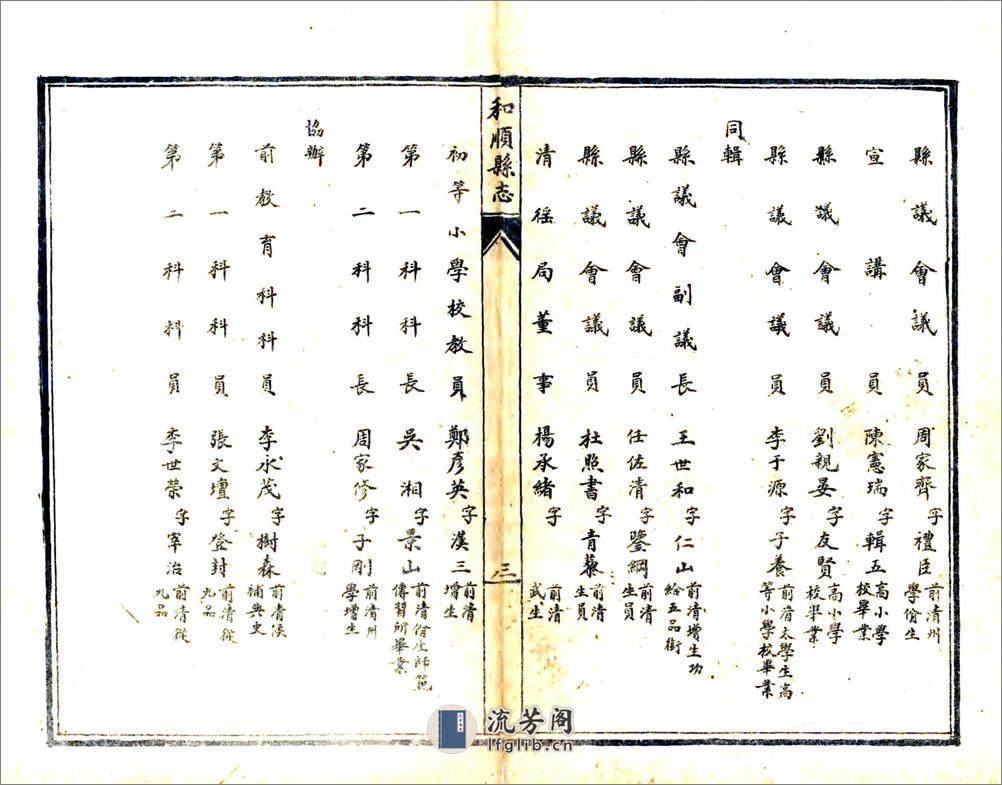 縣議會議員 周家齊 字禮臣 前清州學偹生
宣講員 陳憲瑞 字輯五 高小學校畢業
縣議會議員 劉親晏 字友賢 高小學校畢業
縣議會議員 李于源 字子養 前清太學生高等小學校畢業
同輯
縣議會副議長 王世和 字仁山 前清增生功給五品銜
縣議會議員 任佐清 字鑒綱 前清生員
縣議會議員 杜照書 字青藜 前清生員
清徭局董事 楊承緒 字 前清武生
和順縣志
三
初等小學校教員 鄭彥英 字漢三 前清增生
第一科科長 吳湘 字景山 前清偹生師範傳習所畢業
第二科科長 周家修 字子剛 前清州學增生
協辦
前教育科科員 李永茂 字樹森 前清候補典史
第一科科員 張文壇 字登封 前清從九品
第二科科員 李世榮 字宰治 前清從九品
流芳阁
lfglib.cn